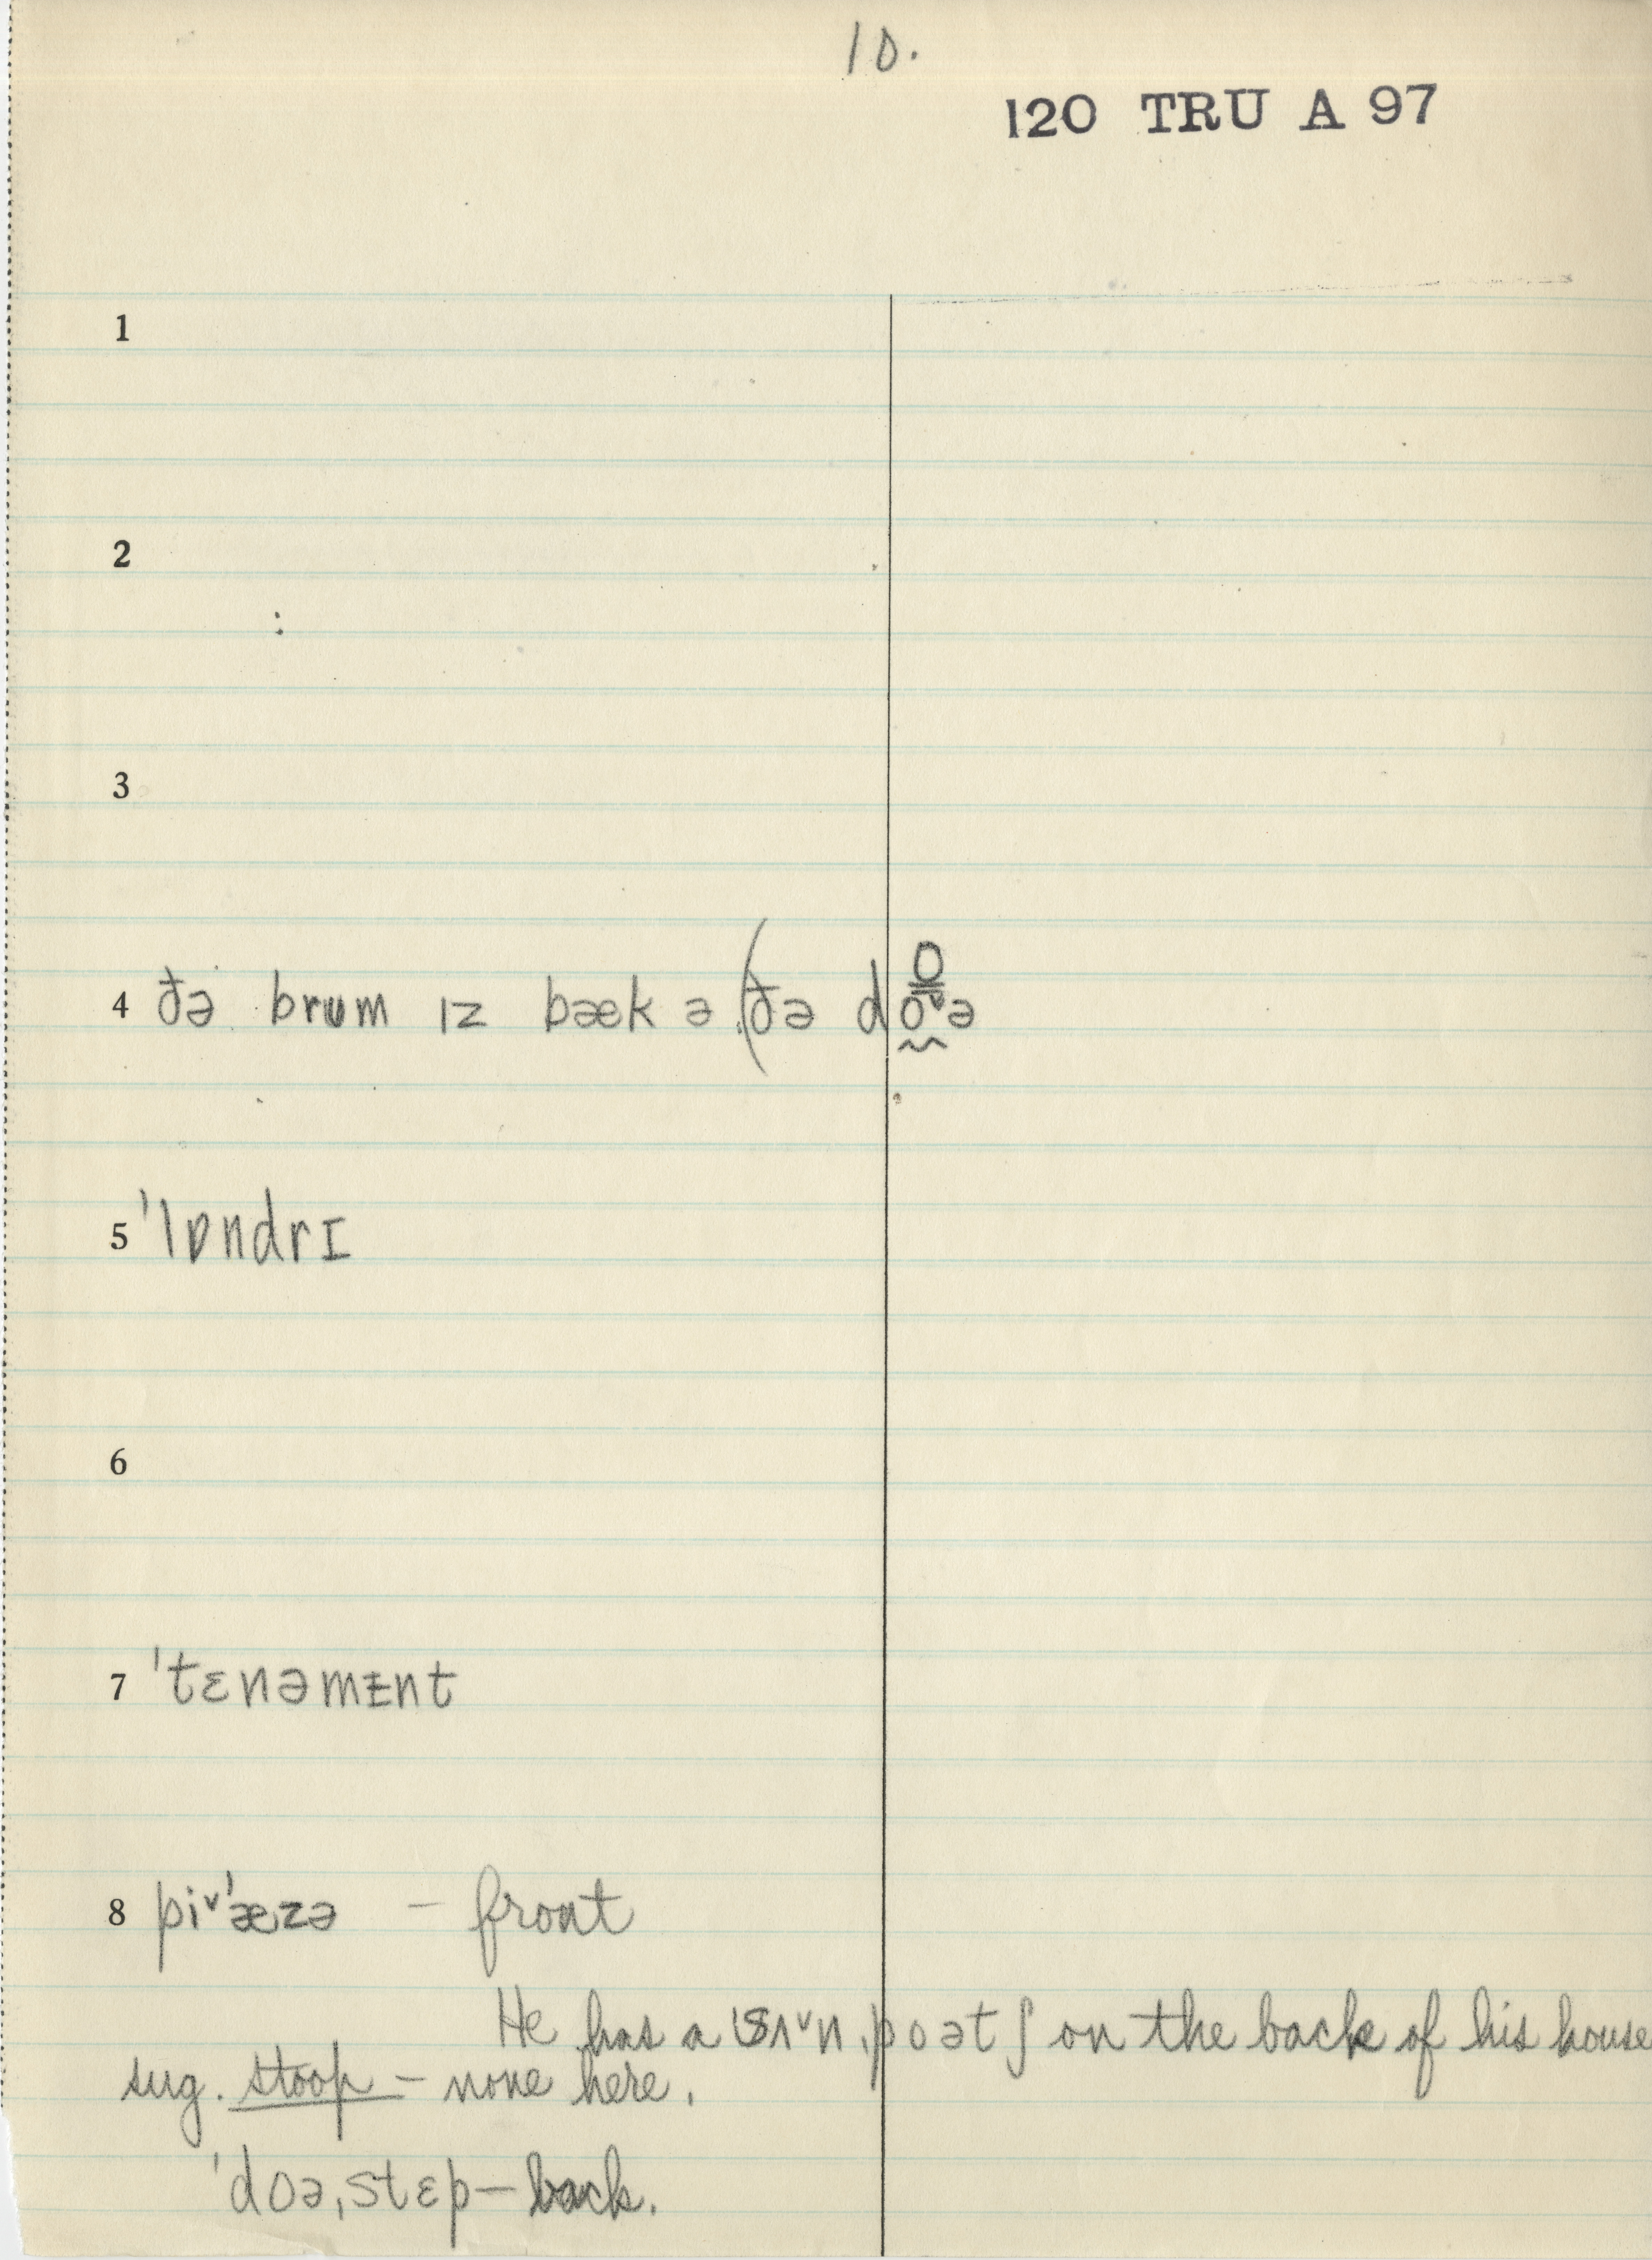 10.
120 TRU A 97
1
2
3
4 ðə brʊm ɪz bæk ə (ðə doˇə
5 ˈlɒndrɪ
6
7 ˈtɛnəmᵻnt
8 piˇˈæzə – front
He has a ˈsʌˇnˌpoətʃ on the back of his house
sug. stoop – none here.
ˈdoəˌstɛp – back.